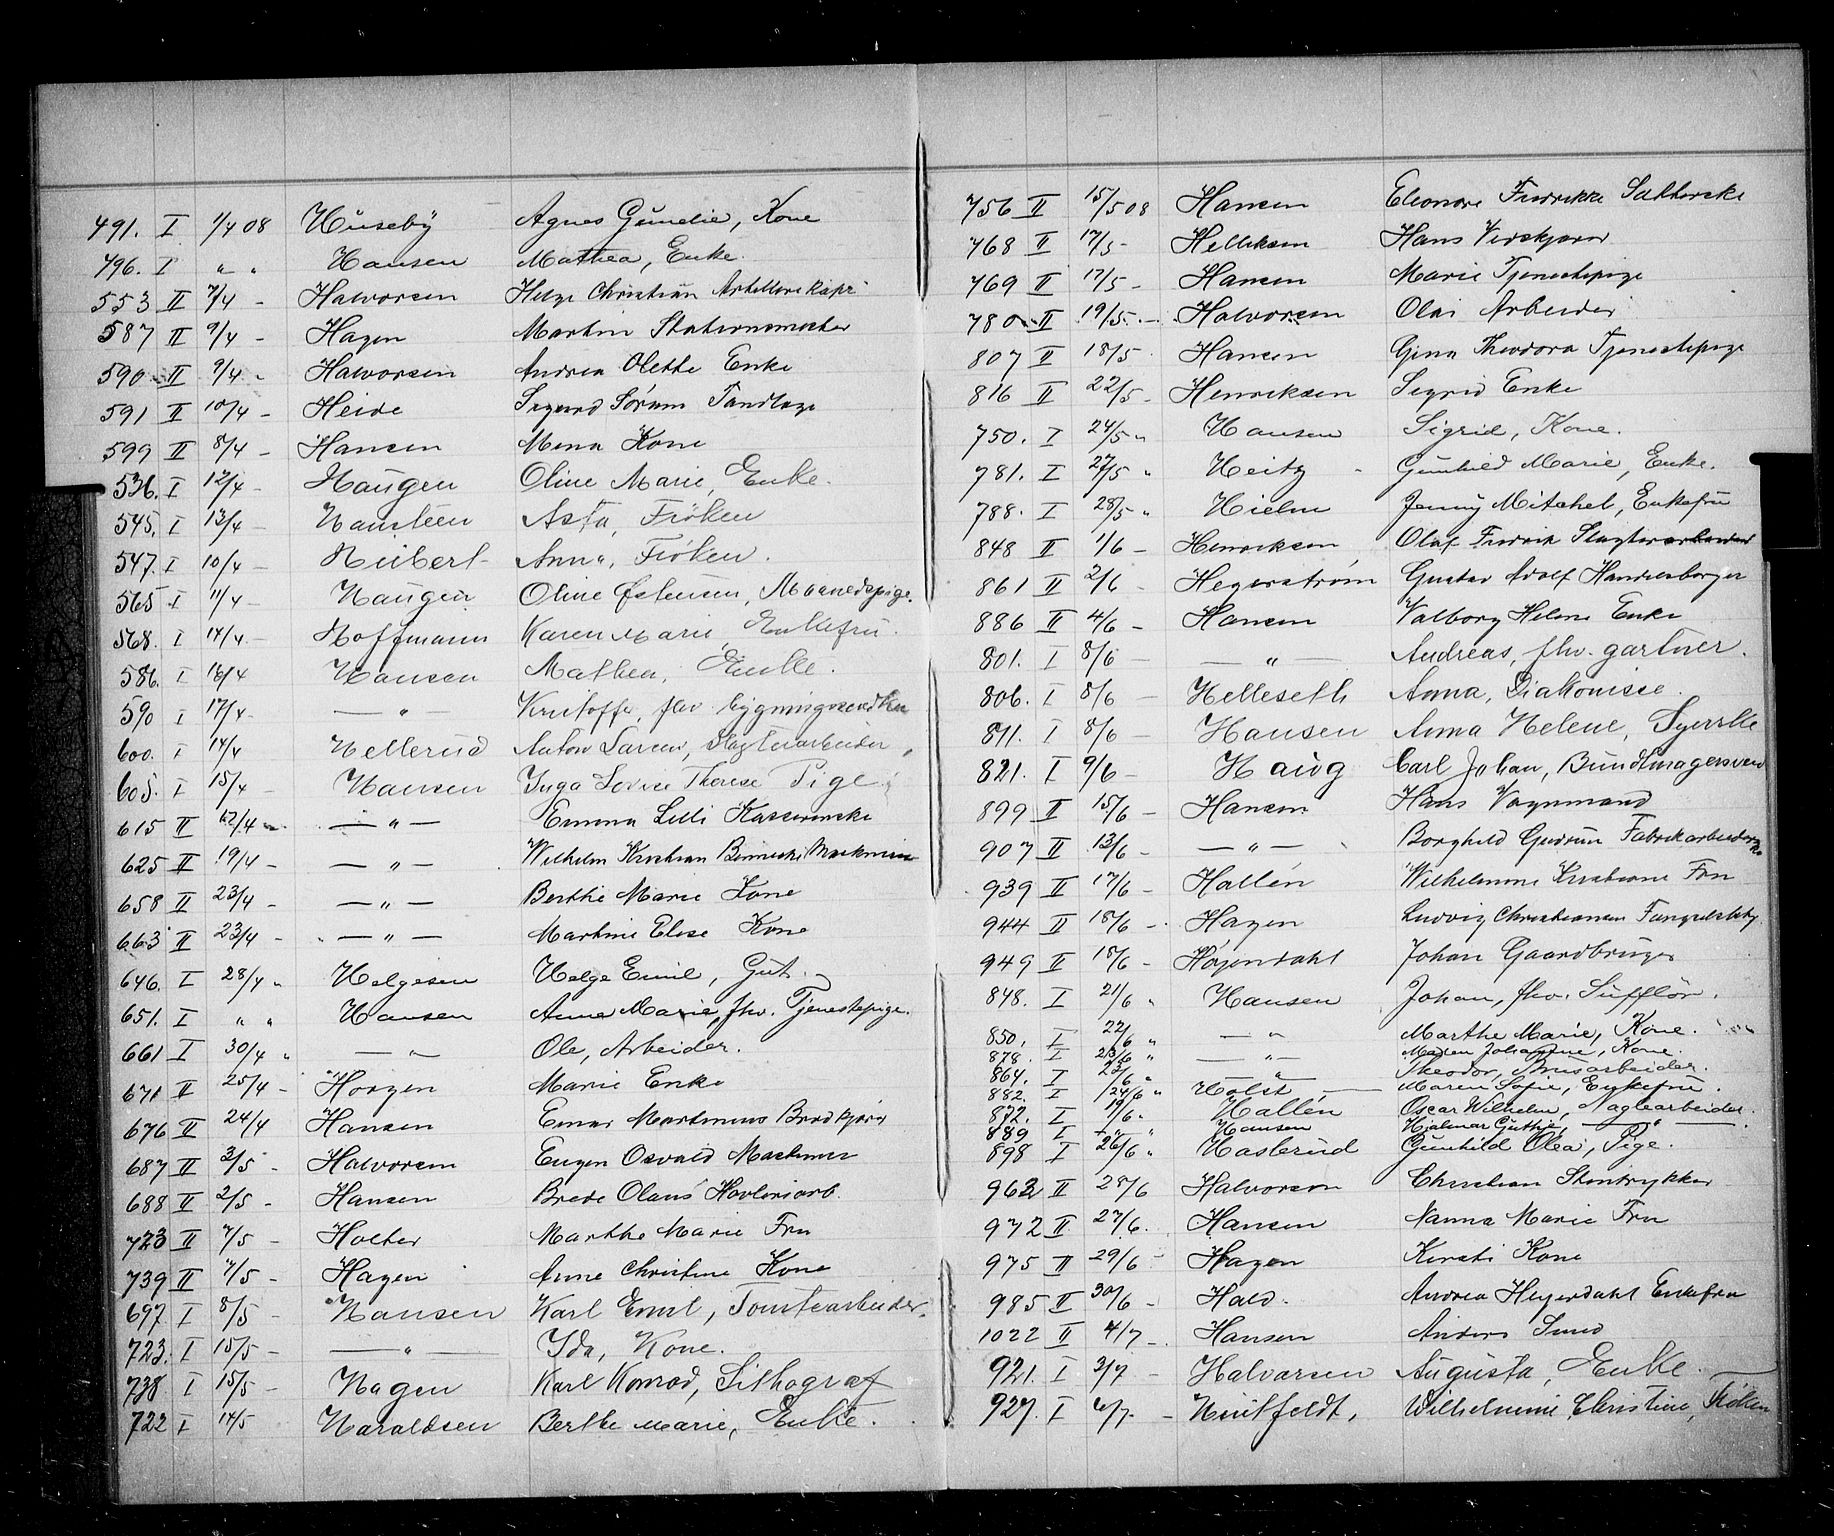 491. I 1/4 08 Huseby Agnes Gunelie, Kone
496. I " " Hansen Mathea, Enke.
553 II 7/4 - Halvorsen Helge Christian
587 II 9/4 - Hagen Martin Stationsmester
590 II 9/4 - Halvorsen Andrea Olette Enke
591 II 10/4 - Heide Sigurd Sørum Tandlæge
599 II 8/4 - Hansen Mena Kone
536. I 12/4 - Haugen Oline Marie, Enke.
545. I 13/4 - Hansteen Asta, Frøken
547. I 10/4 - Heibert Anna, Frøken.
565 I 11/4 - Haugen Oline Østensen,
568. I 14/4 - Hoffmann Karen Marie, Enkefru.
586. I 16/4 Hansen Mathea, Enke.
590 I 17/4 - — " — Kristoffer, fhv.
600. I 14/4 Hellerud Anton Larsen, Slagterarbeider
605. I 15/4 - Hansen Inga Lovise Therese Pige
615 II 12/4 - — " — Emma Lilli Kasserinske
625 II 19/4 - — " — Wilhelm Kristian
658 II 23/4 - — " — Berthe Marie Kone
663 II 23/4 - — " — Martine Elise Kone
646. I 28/4 " Helgesen Helge Emil, Gut.
651. I " " Hansen Anne Marie, fhv. Tjenestepige.
661 I 30/4 " — " — Ole, Arbeider.
671 II 25/4 - Horgen Marie Enke
676 II 24/4 Hansen Einar Martinius Brødkjører
687 II 3/5 - Halvorsen Eugen Osvald
688 II 2/5 - Hansen Brede Olaus Høvleriarb.
723 II 7/5 - Holter Marthe Marie Fru
739 II 7/5 - Hagen Anne Christine Kone
697 I 8/5 - Hansen Karl Emil, Tomtearbeider.
723. I 15/5 - — " — Ida, Kone.
738 I 15/5 - Hagen Karl Konrad, Lithograf
722 I 14/5 Haraldsen Berthe Marie, Enke.
756 II 15/5 08 Hansen Eleonore Fredrikke
768 II 17/5 - Helliksen Hans
769 II 17/5 - Hansen Marie Tjenestepige
780 II 19/5 - Halvorsen Olai Arbeider
807 II 18/5 Hansen Gina Theodora Tjenestepige
816 II 22/5 - Henriksen Sigrid Enke
750. I 24/5 " Hansen Sigrid, Kone.
781. I 27/5 " Heitz Gunhild Marie, Enke.
788. I 28/5 " Hielm Jenny Mitchel, Enkefru
848 II 1/6 - Henriksen Olaf Fredrik Slagterarbeider
861 II 2/6 - Hegerstrøm Gustav Adolf Handelsborger
886 II 4/6 - Hansen Valborg Helene Enke
801. I 8/6 — " — Andreas, fhv. gartner.
806. I 8/6 - Helleseth Anna, Diakonisse.
811. I 8/6 - Hansen Anna Helene, Syerske
821. I 9/6 - Haug Carl Johan, Bundtmagersvend
899 II 15/6 - Hansen Hans Vognmand
907 II 13/6 - — " — Borghild Gudrun Fabrikarbeiderske
939 II 17/6 - Hallén Wilhelmine Kristiane Fru
944 II 18/6 - Hagen Ludvig Christiansen
949 II 18/6 - Høgendahl Johan Gaardbruger
848. I 21/6 " Hansen Johan, fhv. Sufflør.
850. I 22/6 " — " Marthe Marie, Kone.
878. I 23/6 " — " — Maren Johanne, Kone.
864. I 23/6 " — " — Theodor, Brusarbeider.
882. I 24/6 " Holst Maren Sofie, Enkefru.
872. I 19/6 " Hallén Oscar Wilhelm, Naglearbeider.
889 I " " Hansen Hjalmar — " —
898 I 26/6 " Haslerud Gunhild Olea, Pige.
962 II 28/6 Halvorson Christian Stentrykker
972 II 27/6 Hansen Nanna Marie Fru
975 II 29/6 - Hagen Kirsti Kone
985 II 30/6 - Hald. Andrea Heyerdahl Enkefru
1022 II 4/7 - Hansen Anders Smed
921. I 3/7 - Halvorsen Augusta, Enke.
927. I 6/7 - Huitfeldt, Wilhelmine Christine, Frøken